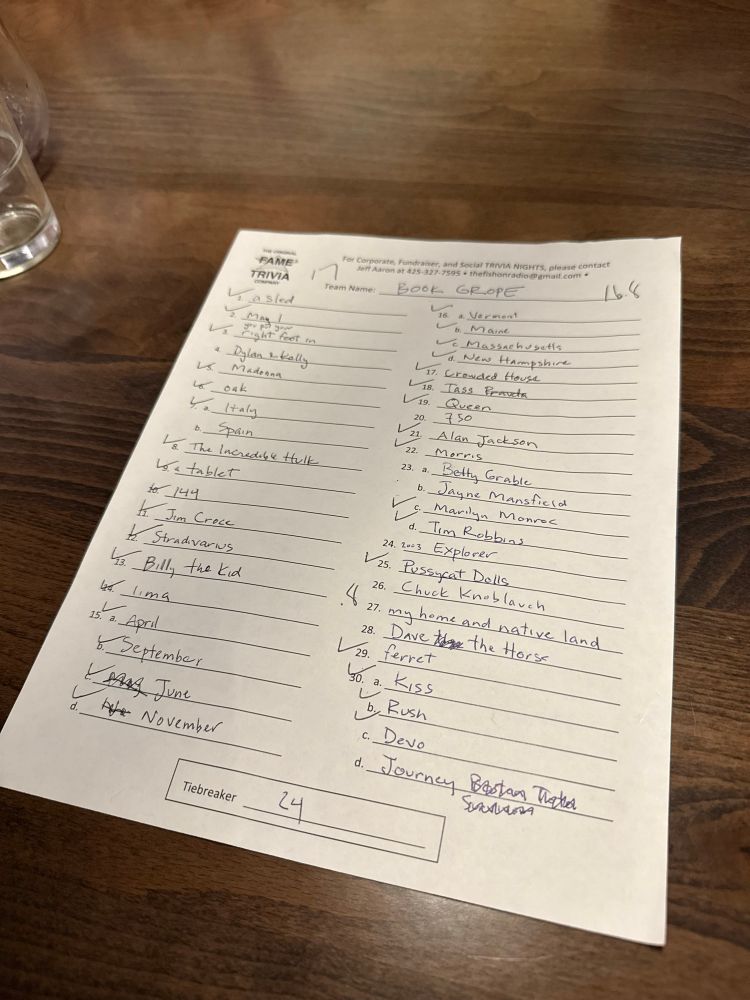 THE ORIGINAL
FAME
TRIVIA
COMPANY
For Corporate, Fundraiser, and Social TRIVIA NIGHTS, please contact
Jeff Aaron at 425-327-7595 • thefishonradio@gmail.com •
17
Team Name: BOOK GROPE
16.8
1. a sled
2. May 1
3. you put your
right foot in
4. Dylan & Kelly
5. Madonna
6. oak
7. a. Italy
b. Spain
8. The Incredible Hulk
9. a tablet
10. 144
11. Jim Croce
12. Stradivarius
13. Billy the Kid
14. lima
15. a. April
b. September
c. June
d. November
16. a. Vermont
b. Maine
c. Massachusetts
d. New Hampshire
17. Crowded House
18. Tass Pravda
19. Queen
20. 750
21. Alan Jackson
22. Morris
23. a. Betty Grable
b. Jayne Mansfield
c. Marilyn Monroe
d. Tim Robbins
24. 2003 Explorer
25. Pussycat Dolls
26. Chuck Knoblauch
.8
27. my home and native land
28. Dave the Horse
29. ferret
30. a. Kiss
b. Rush
c. Devo
d. Journey
Tiebreaker 24